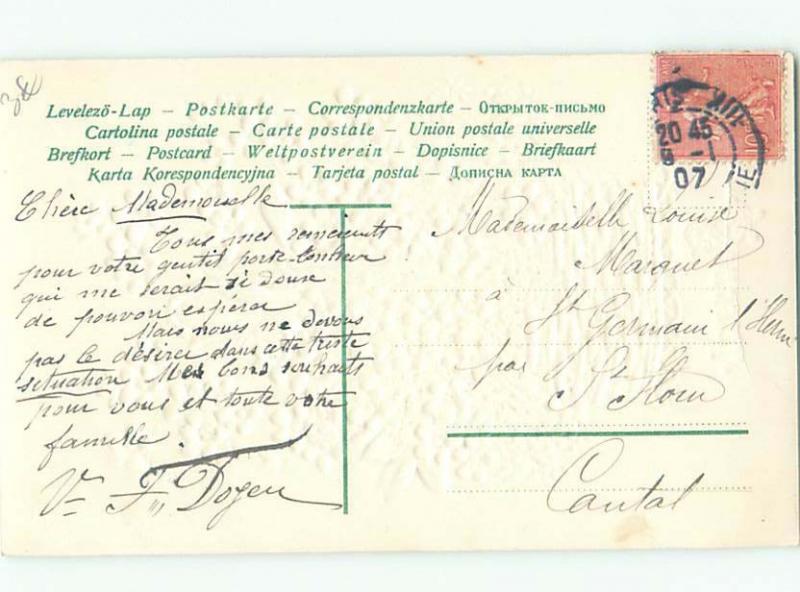 Levelezö-Lap — Postkarte — Correspondenzkarte — Открыток-письмо
Cartolina postale — Carte postale — Union postale universelle
Brefkort — Postcard — Weltpostverein — Dopisnice — Briefkaart
Karta Korespondencyjna — Tarjeta postal — Дописна карта
Chère Mademoiselle
Tous mes remerciments
pour votre gentil porte bonheur
qui me serait si doux
de pouvoir espérer
Mais nous ne devons
pas le désirer dans cette triste
situation Mes bons souhaits
pour vous et toute votre
famille
Vve Doyen
Mademoiselle Louise
Marquet
à St Germain l'Herm
par St Flour
Cantal
20 45
07